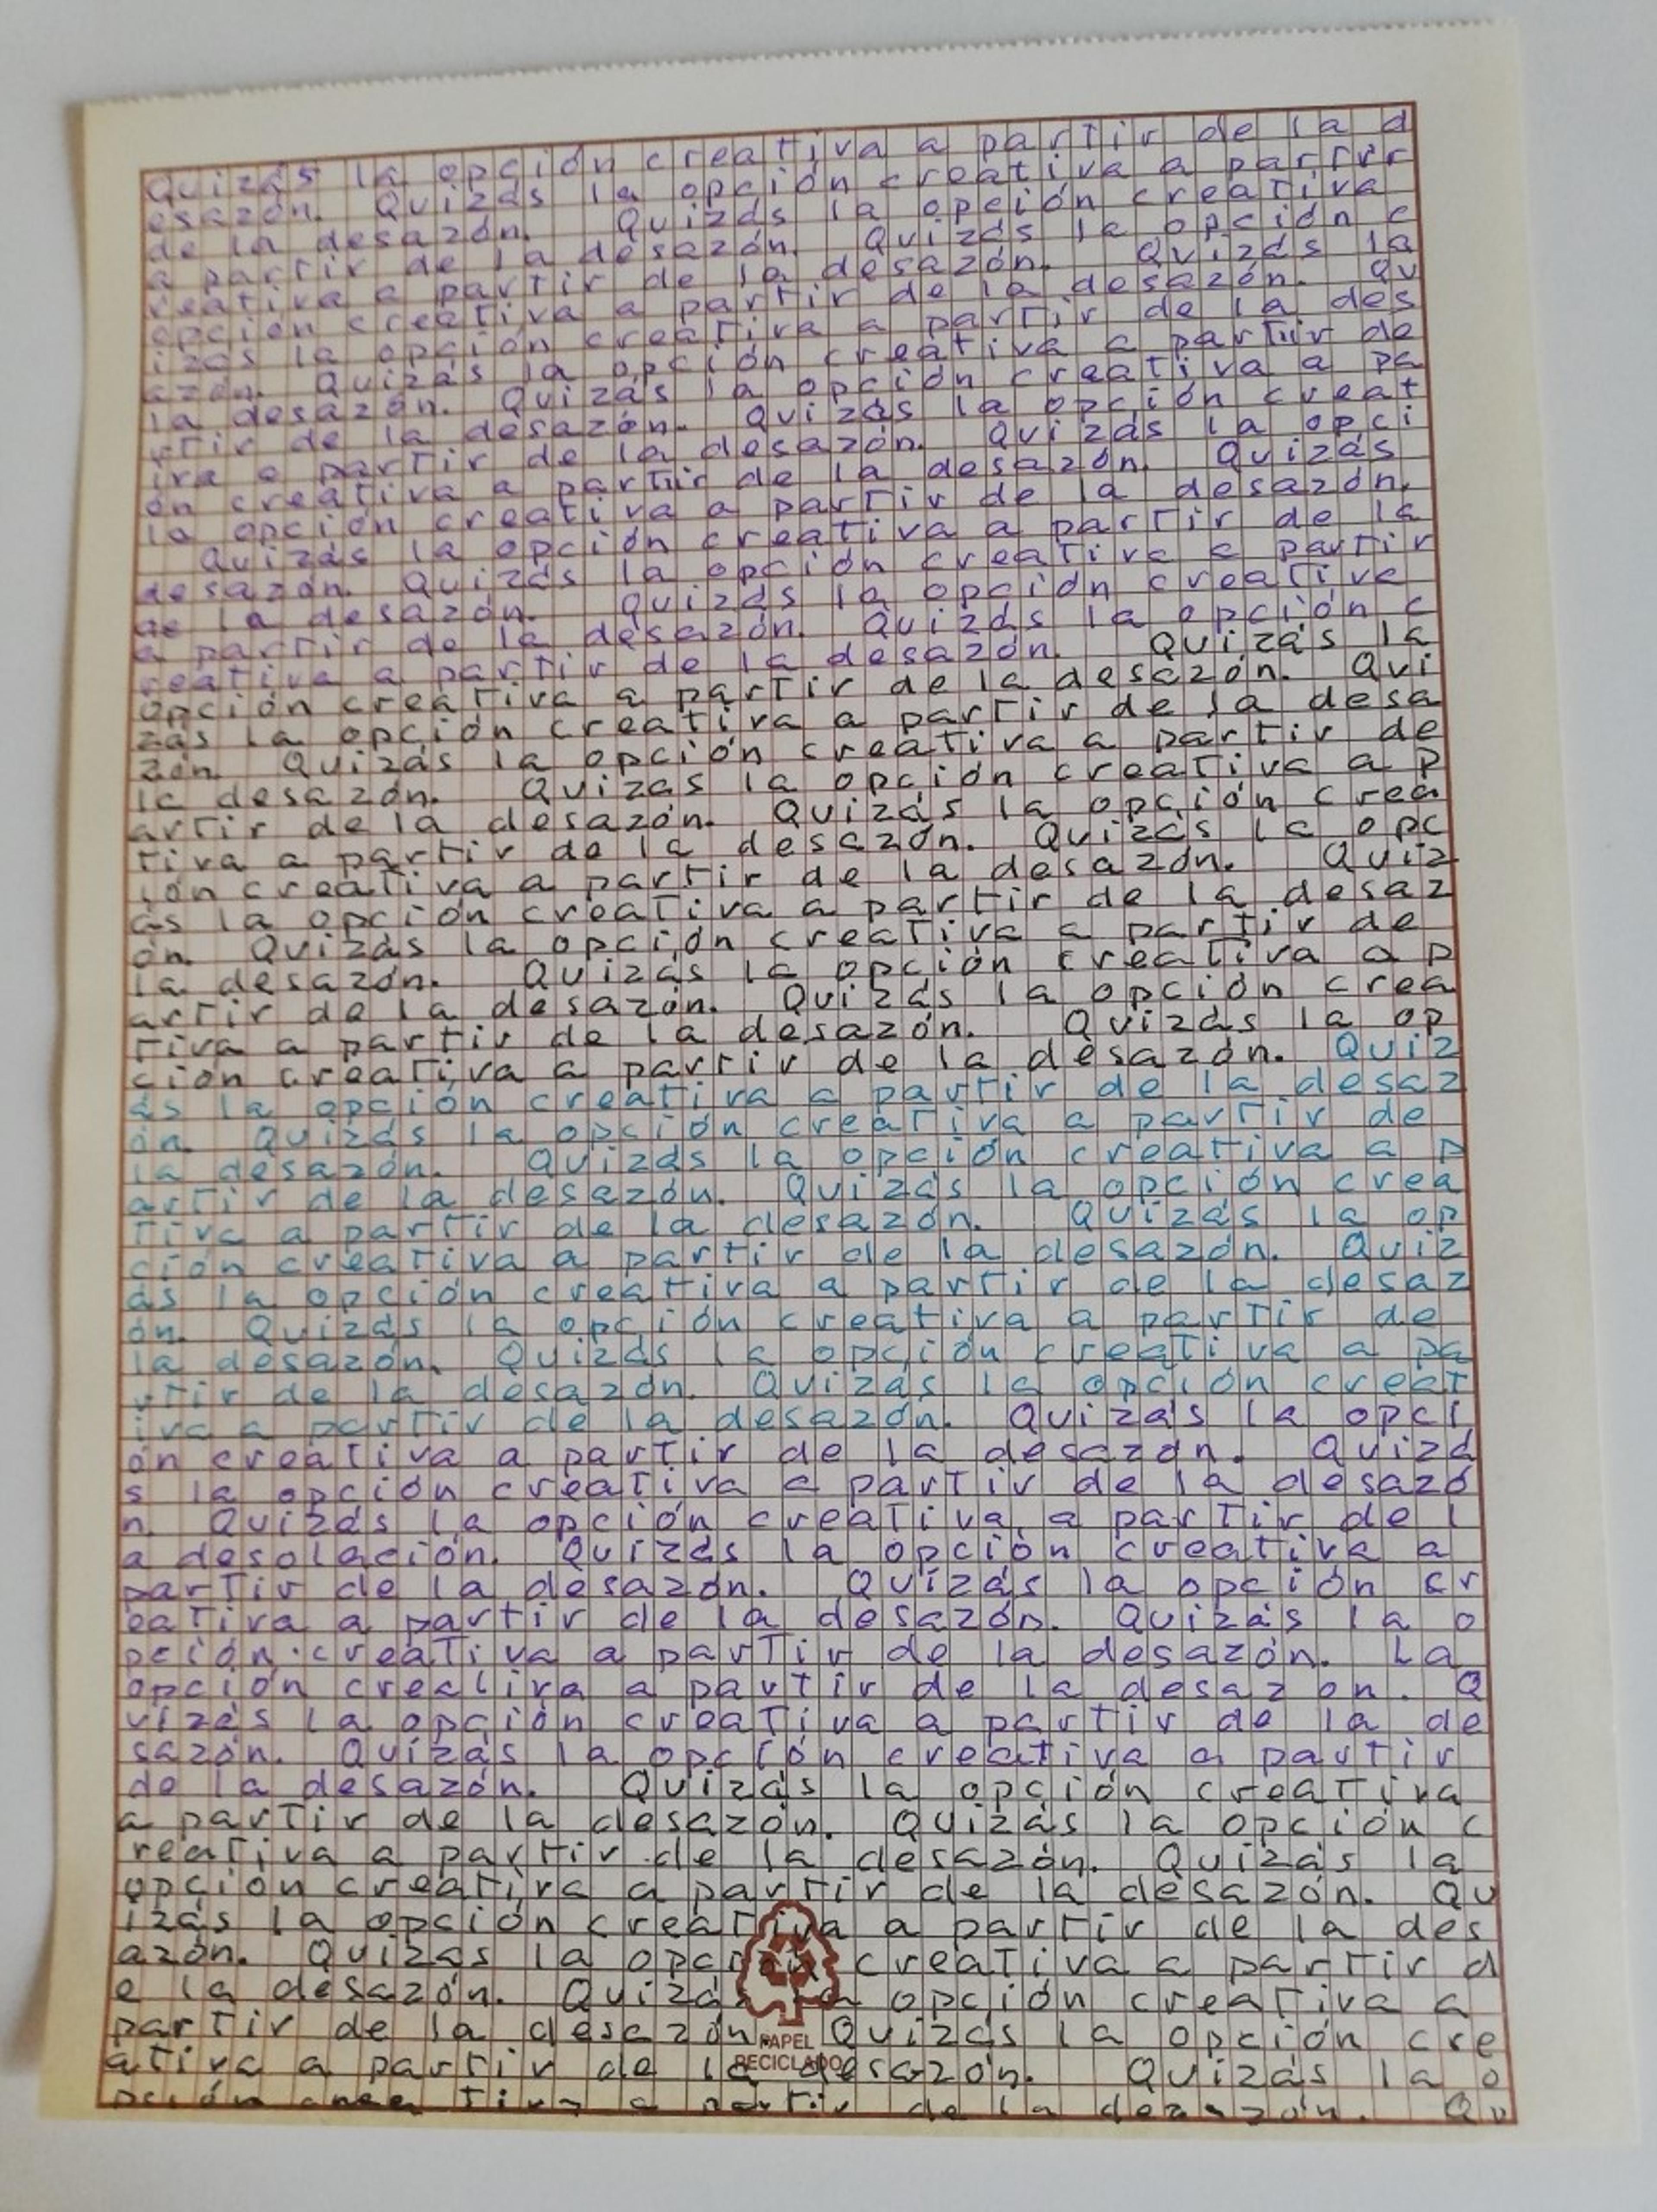 Quizás la opción creativa a partir de la d
esazón. Quizás la opción creativa a partir
de la desazón. Quizás la opción creativa
a partir de la desazón. Quizás la opción c
reativa a partir de la desazón. Quizás la
opción creativa a partir de la desazón. Qu
izás la opción creativa a partir de la des
azón. Quizás la opción creativa a partir de
la desazón. Quizás la opción creativa a pa
rtir de la desazón. Quizás la opción creat
iva a partir de la desazón. Quizás la opci
ón creativa a partir de la desazón. Quizás
la opción creativa a partir de la desazón.
Quizás la opción creativa a partir de la
desazón. Quizás la opción creativa a partir
de la desazón. Quizás la opción creativa
a partir de la desazón. Quizás la opción c
reativa a partir de la desazón. Quizás la
opción creativa a partir de la desazón. Qui
zás la opción creativa a partir de la desa
zón. Quizás la opción creativa a partir de
la desazón. Quizás la opción creativa a p
artir de la desazón. Quizás la opción crea
tiva a partir de la desazón. Quizás la opc
ión creativa a partir de la desazón. Quiz
ás la opción creativa a partir de la desaz
ón. Quizás la opción creativa a partir de
la desazón. Quizás la opción creativa a p
artir de la desazón. Quizás la opción crea
tiva a partir de la desazón. Quizás la op
ción creativa a partir de la desazón. Quiz
ás la opción creativa a partir de la desaz
ón. Quizás la opción creativa a partir de
la desazón. Quizás la opción creativa a p
artir de la desazón. Quizás la opción crea
tiva a partir de la desazón. Quizás la op
ción creativa a partir de la desazón. Quiz
ás la opción creativa a partir de la desaz
ón. Quizás la opción creativa a partir de
la desazón. Quizás la opción creativa a pa
rtir de la desazón. Quizás la opción creat
iva a partir de la desazón. Quizás la opci
ón creativa a partir de la desazón. Quizá
s la opción creativa a partir de la desazó
n. Quizás la opción creativa a partir de l
a desolación. Quizás la opción creativa a
partir de la desazón. Quizás la opción cr
eativa a partir de la desazón. Quizás la o
pción creativa a partir de la desazón. La
opción creativa a partir de la desazon. Q
uizás la opción creativa a partir de la de
sazón. Quizás la opción creativa a partir
de la desazón. Quizás la opción creativa
a partir de la desazón. Quizás la opción c
reativa a partir de la desazón. Quizás la
opción creativa a partir de la desazón. Qu
izás la opción creativa a partir de la des
azón. Quizás la opción creativa a partir d
e la desazón. Quizás la opción creativa a
partir de la desazón. Quizás la opción cre
ativa a partir de la desazón. Quizás la o
pción creativa a partir de la desazón. Qu
PAPEL
RECICLADO